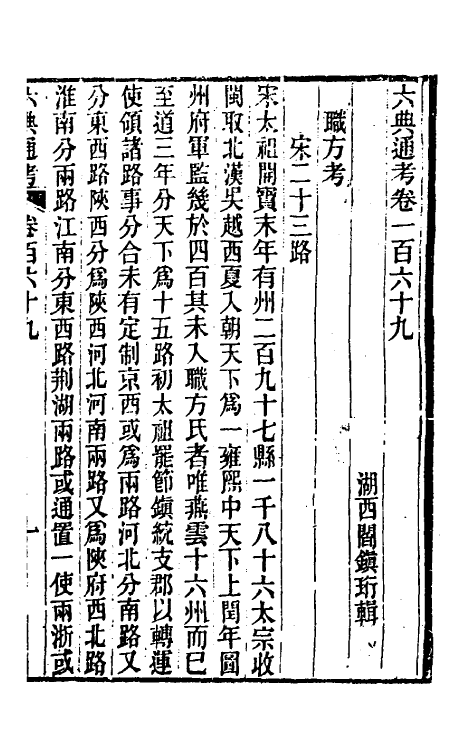 六典通考卷一百六十九
湖西閻鎮珩輯
職方考
宋二十三路
宋太祖開寶末年有州二百九十七縣一千八十六太宗收
閩取北漢吳越西夏入朝天下爲一雍熙中天下上閏年圖
州府軍監幾於四百其未入職方氏者唯燕雲十六州而已
至道三年分天下爲十五路初太祖罷節鎮統支郡以轉運
使領諸路事分合未有定制京西或爲兩路河北分南路又
分東西路陝西分爲陝西河北河南兩路又爲陝府西北路
淮南分兩路江南分東西路荆湖兩路或通置一使兩浙或
六典通考
卷百六十九
一